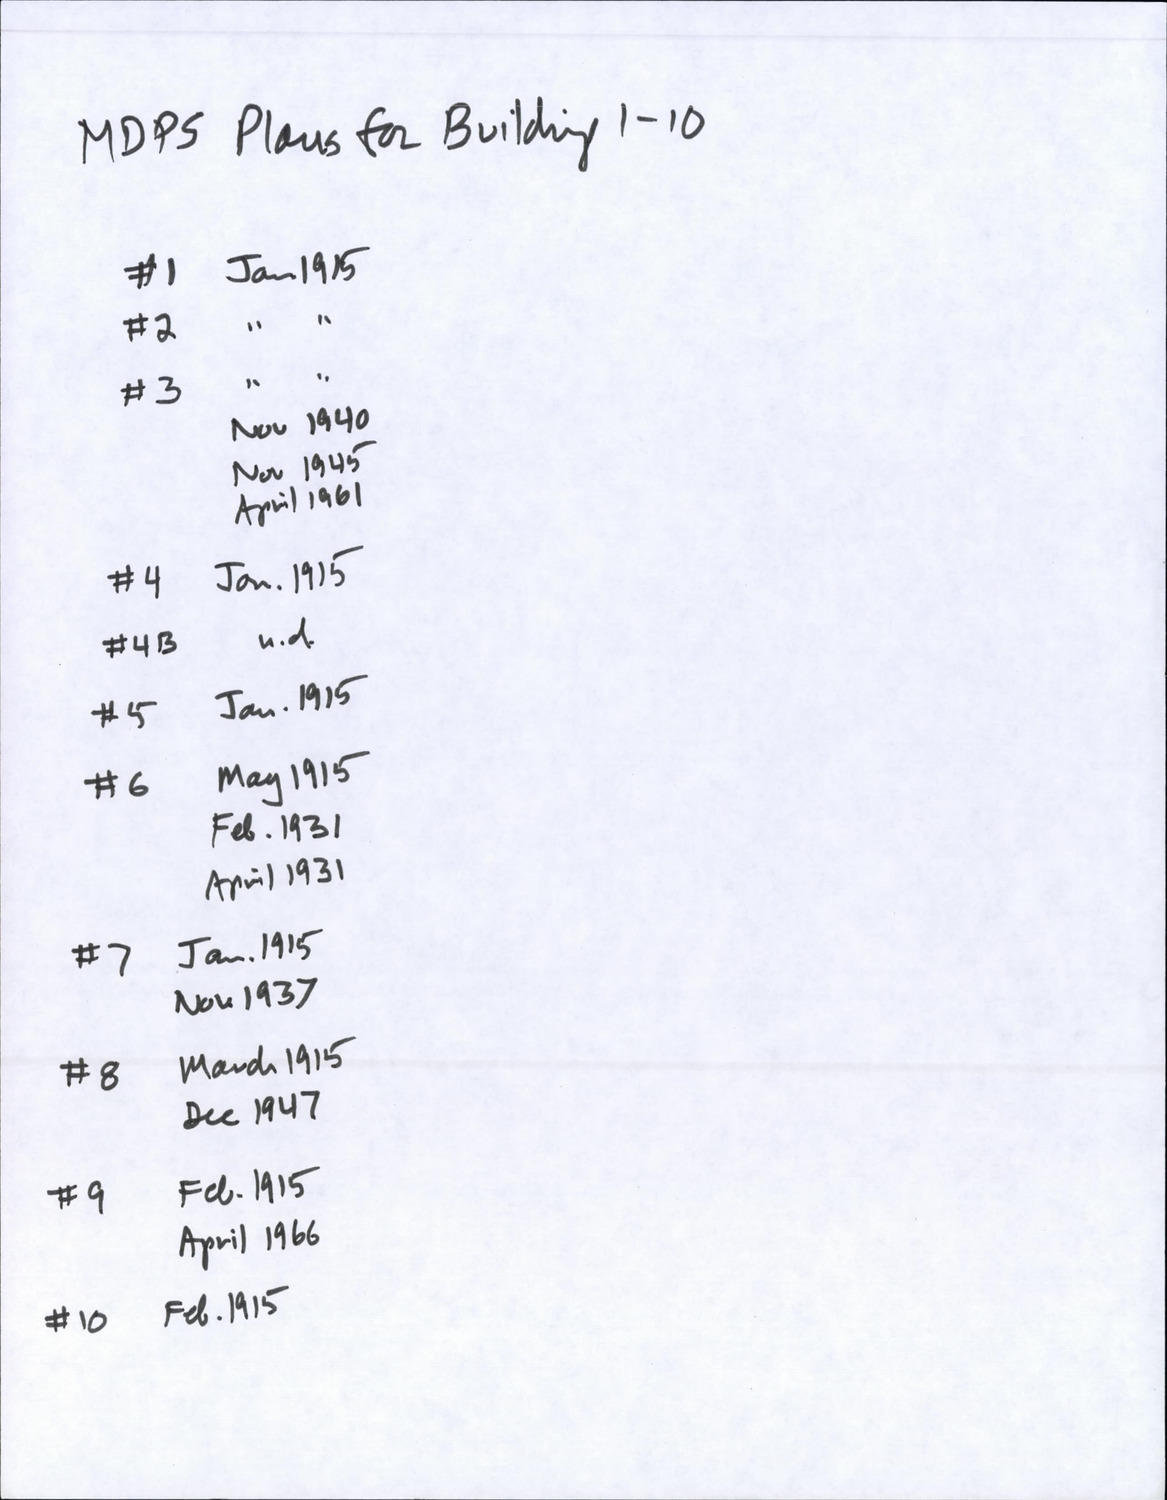 MDPS Plans for Building 1-10
#1 Jan 1915
#2 " "
#3 " "
Nov 1940
Nov 1945
April 1961
#4 Jan. 1915
#4B n.d.
#5 Jan. 1915
#6 May 1915
Feb. 1931
April 1931
#7 Jan. 1915
Nov 1937
#8 March 1915
Dec 1947
#9 Feb. 1915
April 1966
#10 Feb. 1915